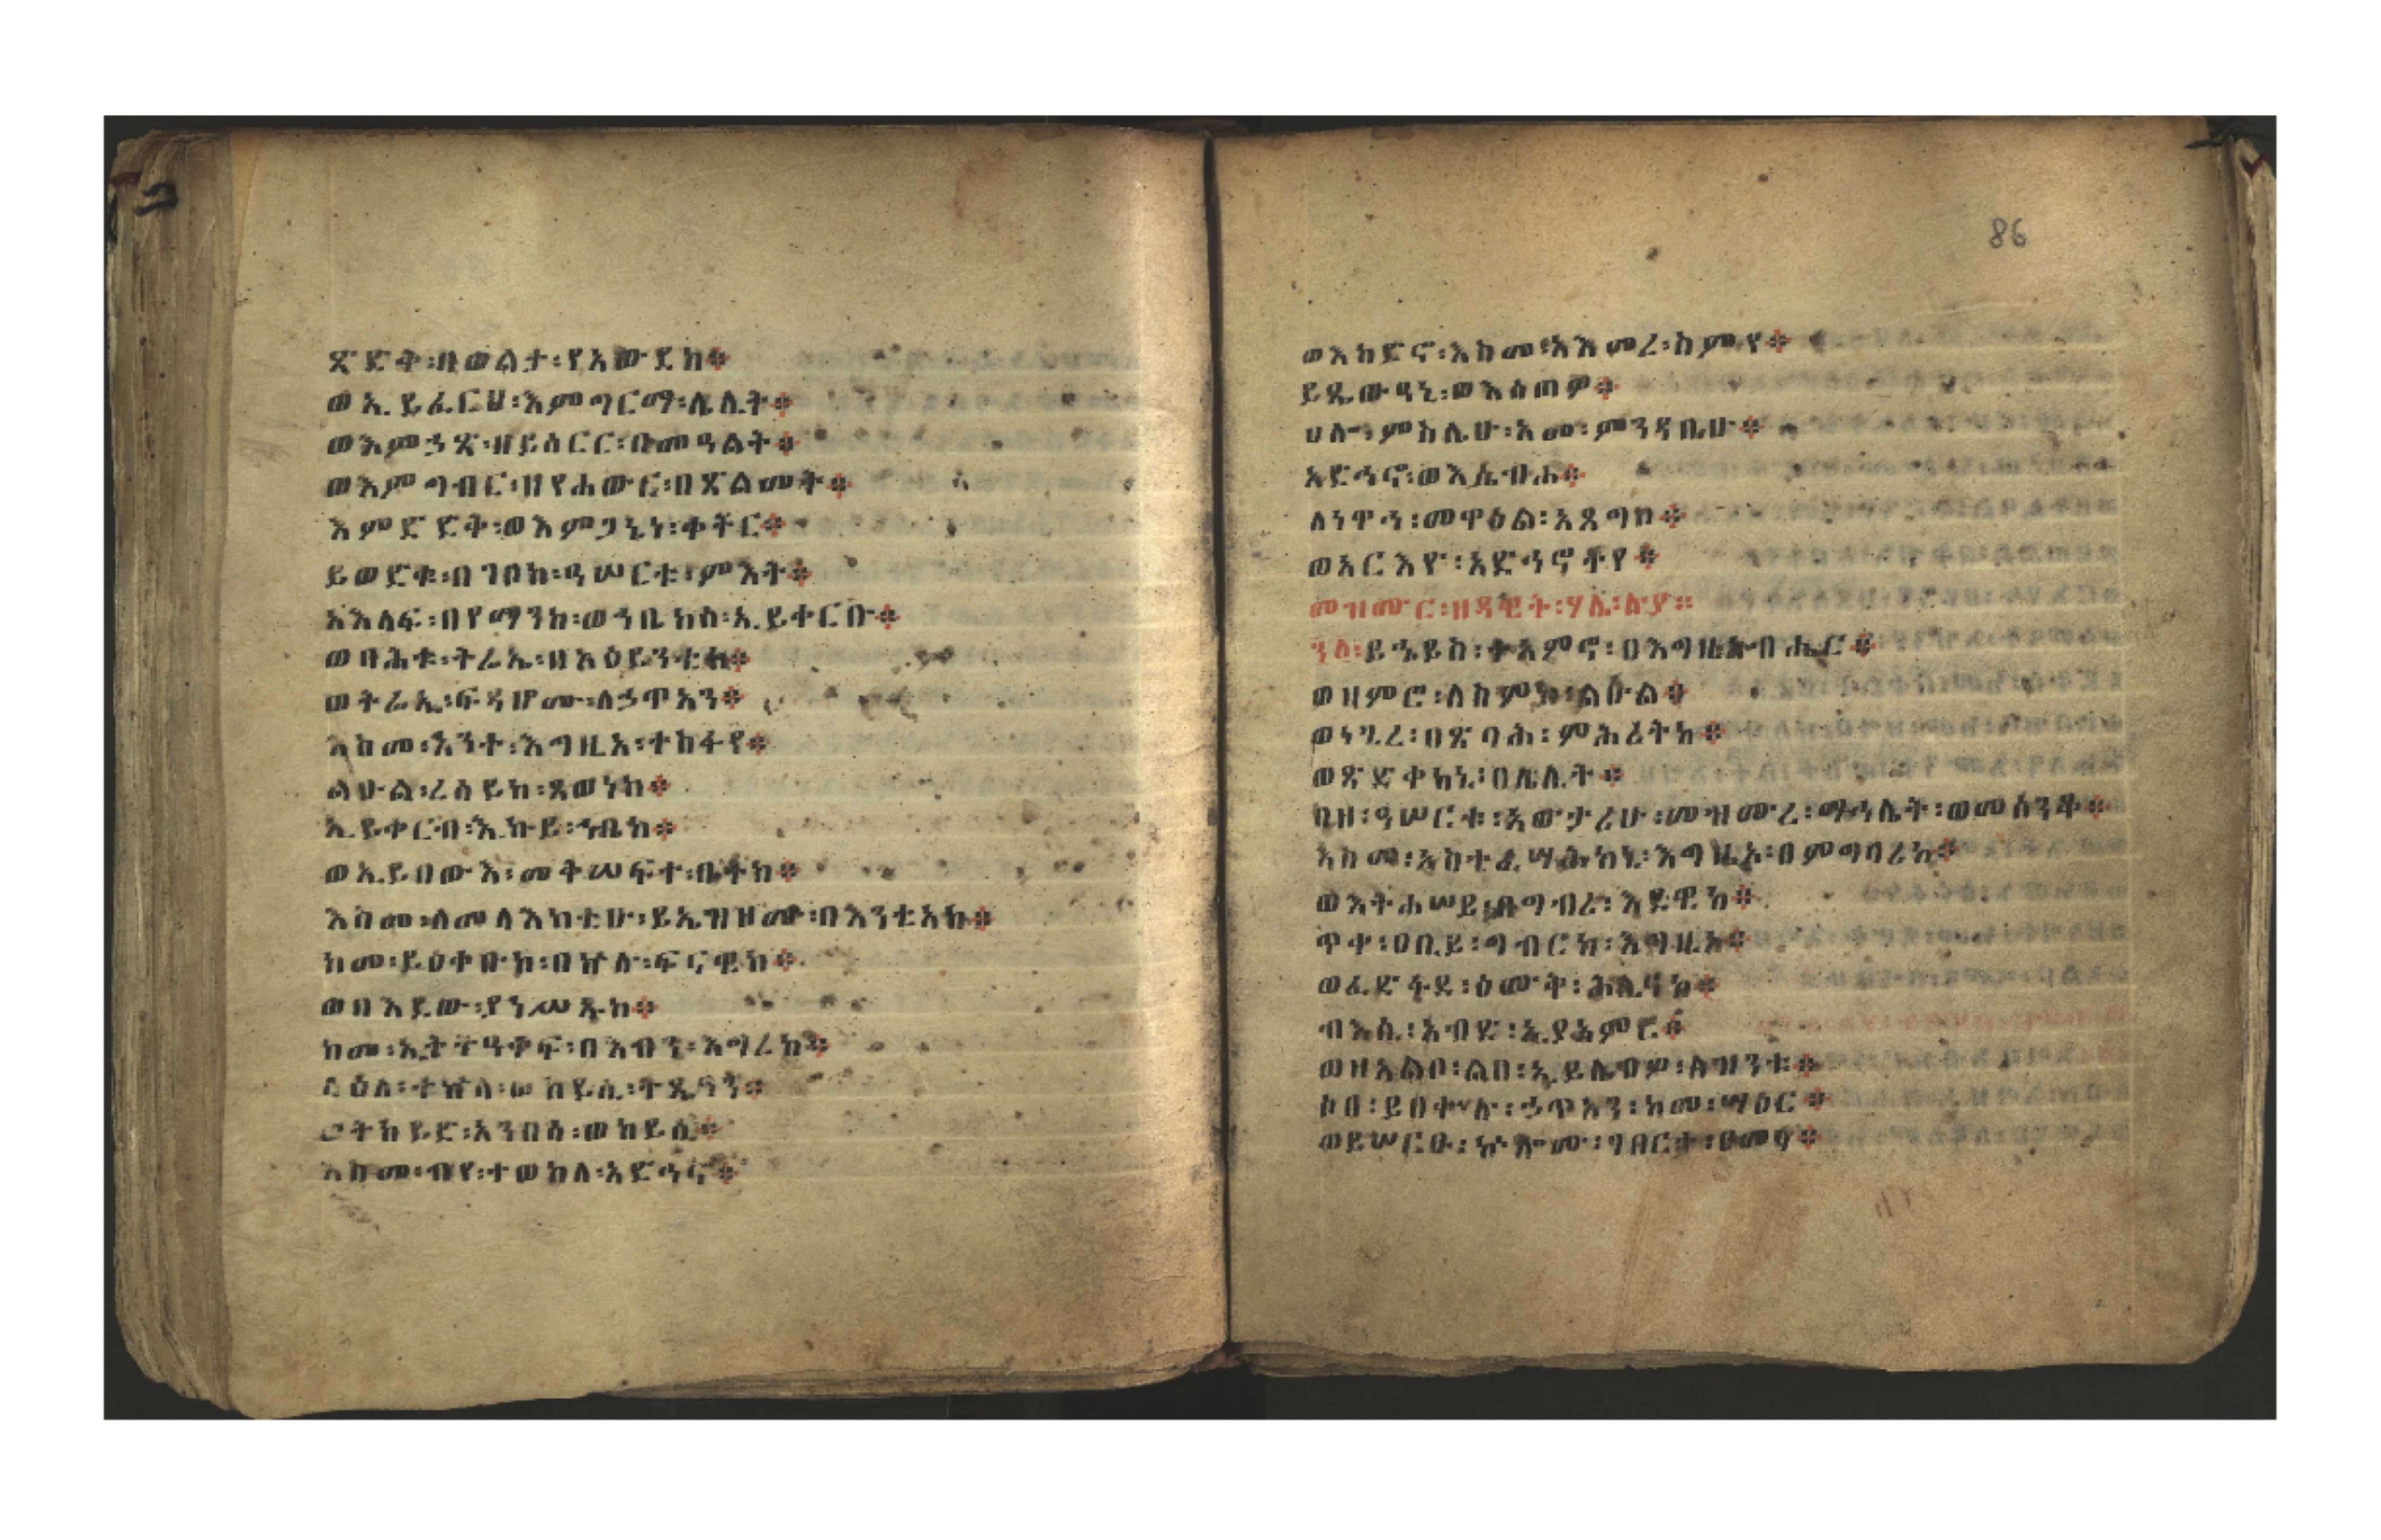 ጽድቅ፡በወልታ፡የአውደከ።
ወኢይፈርህ፡እምግርማ፡ሌሊት።
ወእምኃጽ፡ዘይሰርር፡በመዓልት።
ወእምግብር፡ዘየሐውር፡በጽልመት።
እምድድቅ፡ወእምጋኔነ፡ቀትር።
ይወድቁ፡በገቦከ፡ዓሠርቱ፡ምእት።
አእላፍ፡በየማንከ፡ወኀቤከሰ፡ኢይቀርቡ።
ወባሕቱ፡ትሬኢ፡በአዕይንቲከ።
ወትሬኢ፡ፍዳሆሙ፡ለኃጥአን።
እስመ፡አንተ፡እግዚአ፡ተስፋየ።
ልዑል፡ረሰይከ፡ጸወነከ።
ኢይቀርብ፡እኩይ፡ኀቤከ።
ወኢይበውእ፡መቅሠፍተ፡ቤተከ።
እስመ፡ለመላእክቲሁ፡ይኤዝዞሙ፡በእንቲአከ።
ከመ፡ይዕቀቡከ፡በኵሉ፡ፍናዊከ።
ወበእደው፡ያነሥኡከ።
ከመ፡ኢትትዓቀፍ፡በእብን፡እግረከ።
ላዕለ፡ተኵላ፡ወከይሲ፡ትጼዓን።
ወትከይድ፡አንበሳ፡ወከይሴ።
እስመ፡ብየ፡ተወከለ፡አድኅኖ።
86
ወእከድኖ፡እስመ፡አእመረ፡ስምየ።
ይጼውዓኒ፡ወእሰጠዎ።
ሀሎኩ፡ምስሌሁ፡አመ፡ምንዳቤሁ።
አድኅኖ፡ወእሴብሖ።
ለነዋኅ፡መዋዕል፡አጸግቦ።
ወአርእዮ፡አድኅኖትየ።
መዝሙር፡ዘዳዊት፡ሃሌ፡ሉያ።
ኀሰ፡ይኄይስ፡ተአምኖ፡በእግዚአብሔር።
ወዘምሮ፡ለስምከ፡ልዑል።
ወነጊረ፡በጽባሕ፡ምሕረትከ።
ወጽድቀከኒ፡በሌሊት።
በዘ፡ዓሠርቱ፡አውታሪሁ፡መዝሙረ፡ማኅሌት፡ወመሰንቆ።
እስመ፡አስተፈሣሕከኒ፡እግዚኦ፡በምግባሪከ።
ወእትሐሠይ፡በግብረ፡እደዊከ።
ጥቀ፡ዐቢይ፡ግብርከ፡እግዚኦ።
ወፈድፋደ፡ዕሙቅ፡ሕሊናከ።
ብእሲ፡አብድ፡ኢያአምሮ።
ወዘአልቦ፡ልበ፡ኢይሌብዎ፡ለዝንቱ።
ሶበ፡ይበቍሉ፡ኃጥአን፡ከመ፡ሣዕር።
ወይሠርፁ፡ኵሎሙ፡ገበርተ፡ዐመፃ።